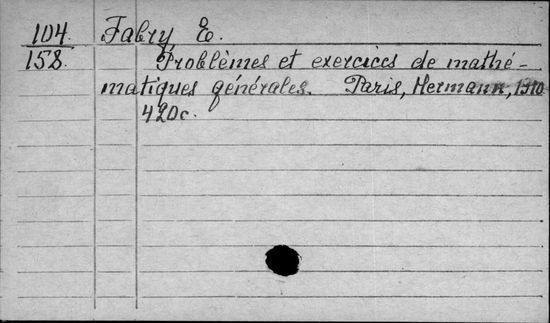 104 Fabry E.
158. Problèmes et exercices de mathé-
matiques générales. Paris, Hermann, 1910
420c.